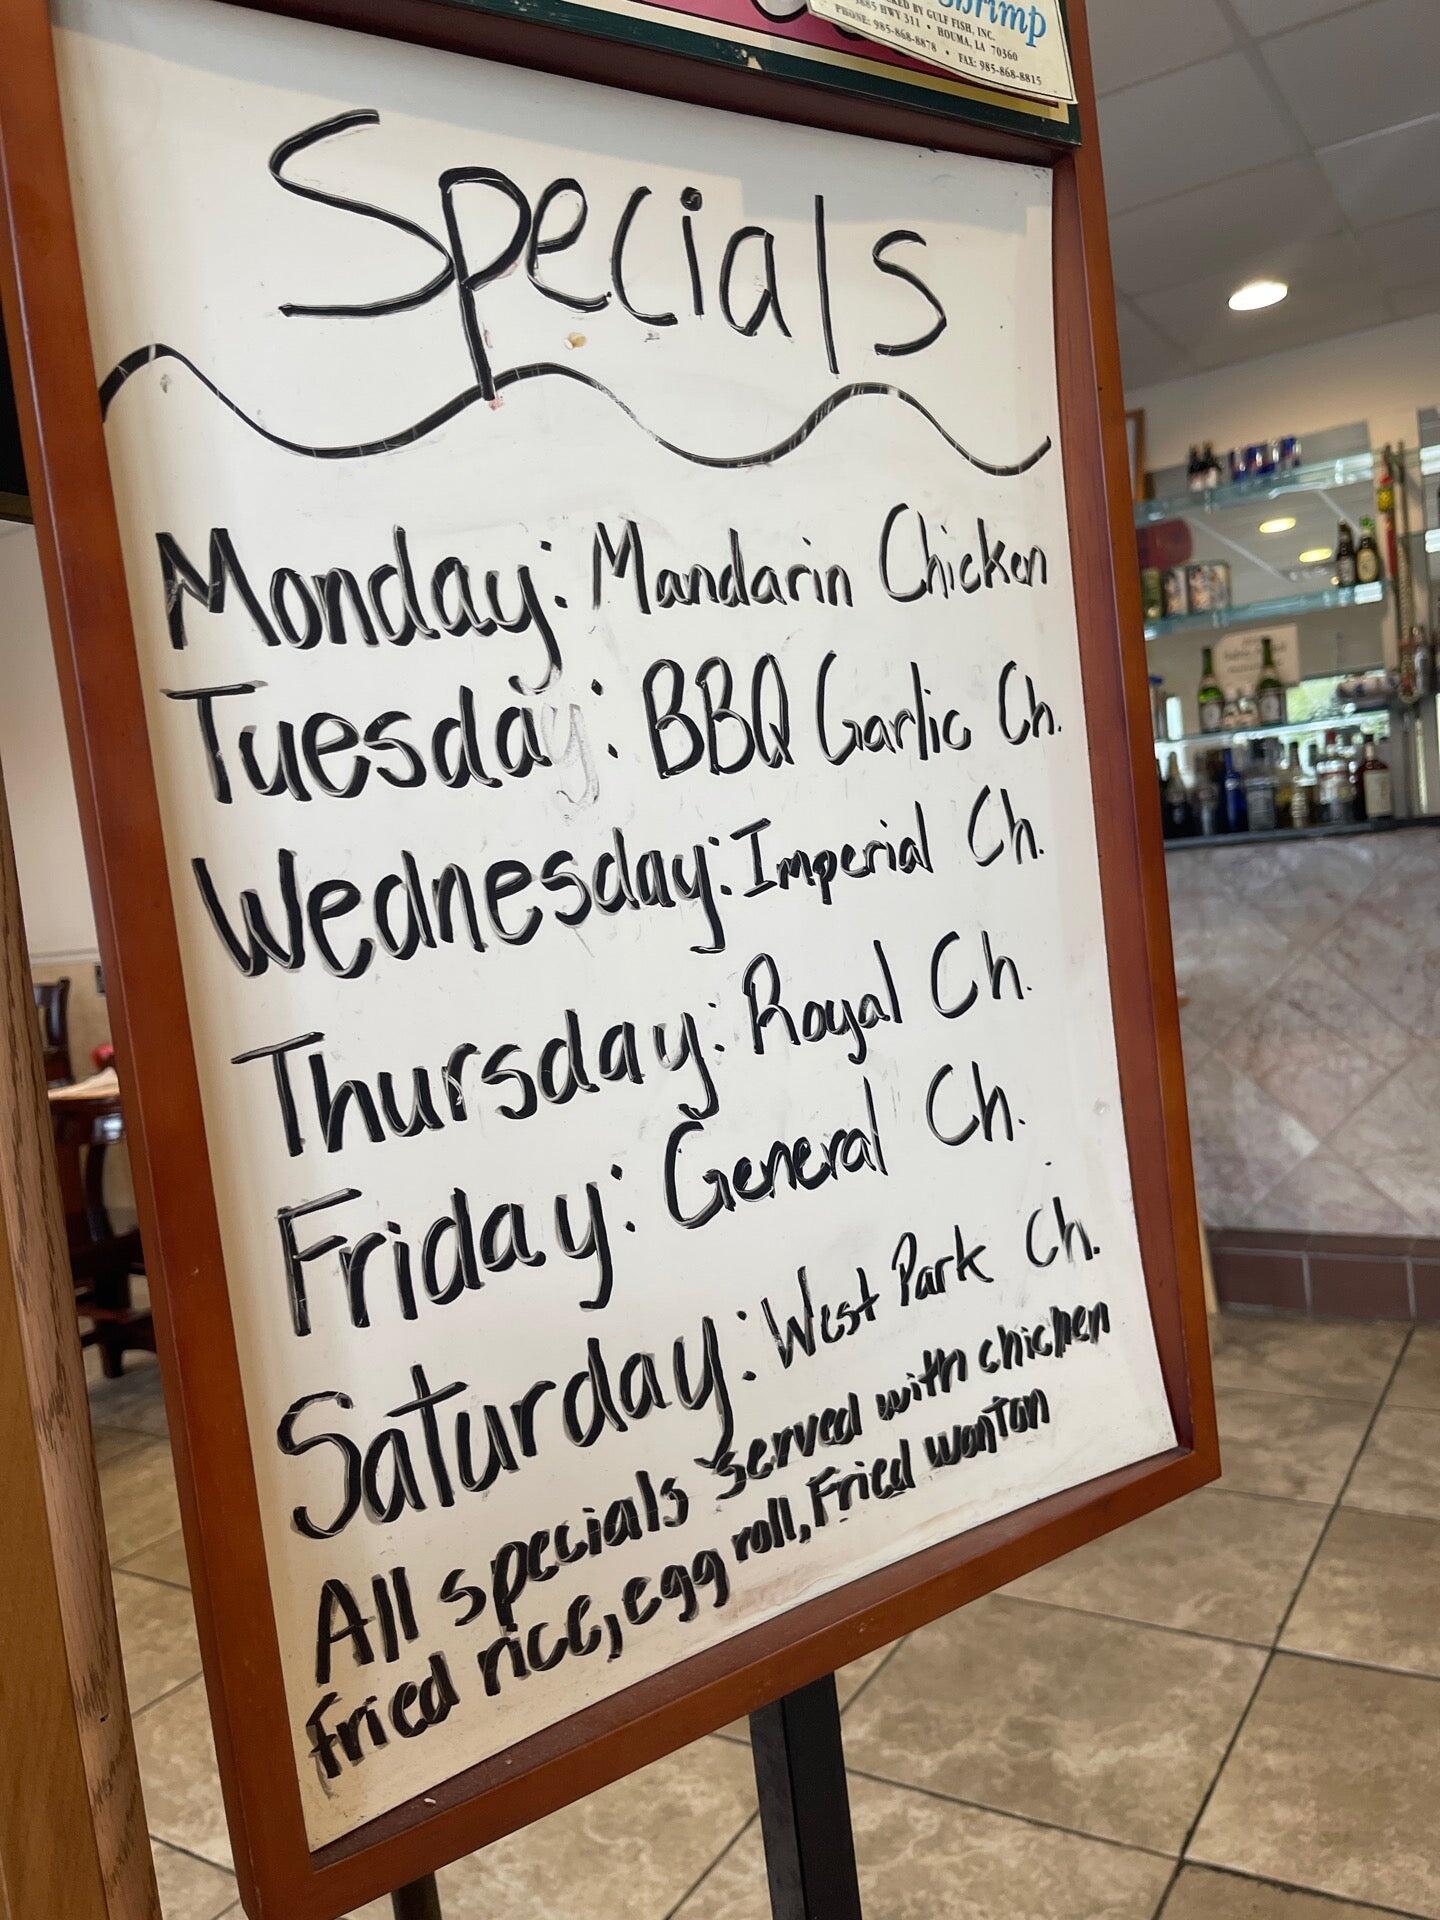 Shrimp
BY GULF FISH, INC.
HWY 311 • HOUMA, LA 70360
PHONE: 985-868-8878 • FAX: 985-868-8815
Specials
Monday: Mandarin Chicken
Tuesday: BBQ Garlic Ch.
Wednesday: Imperial Ch.
Thursday: Royal Ch.
Friday: General Ch.
Saturday: West Park Ch.
All specials served with chicken
fried rice, egg roll, Fried wonton